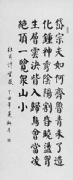 岱宗夫如何齊魯青未了造
化鍾神秀陰陽割昏曉蕩胸
生層雲決眥入歸鳥會當凌
絕頂一覽眾山小
杜甫詩望岳